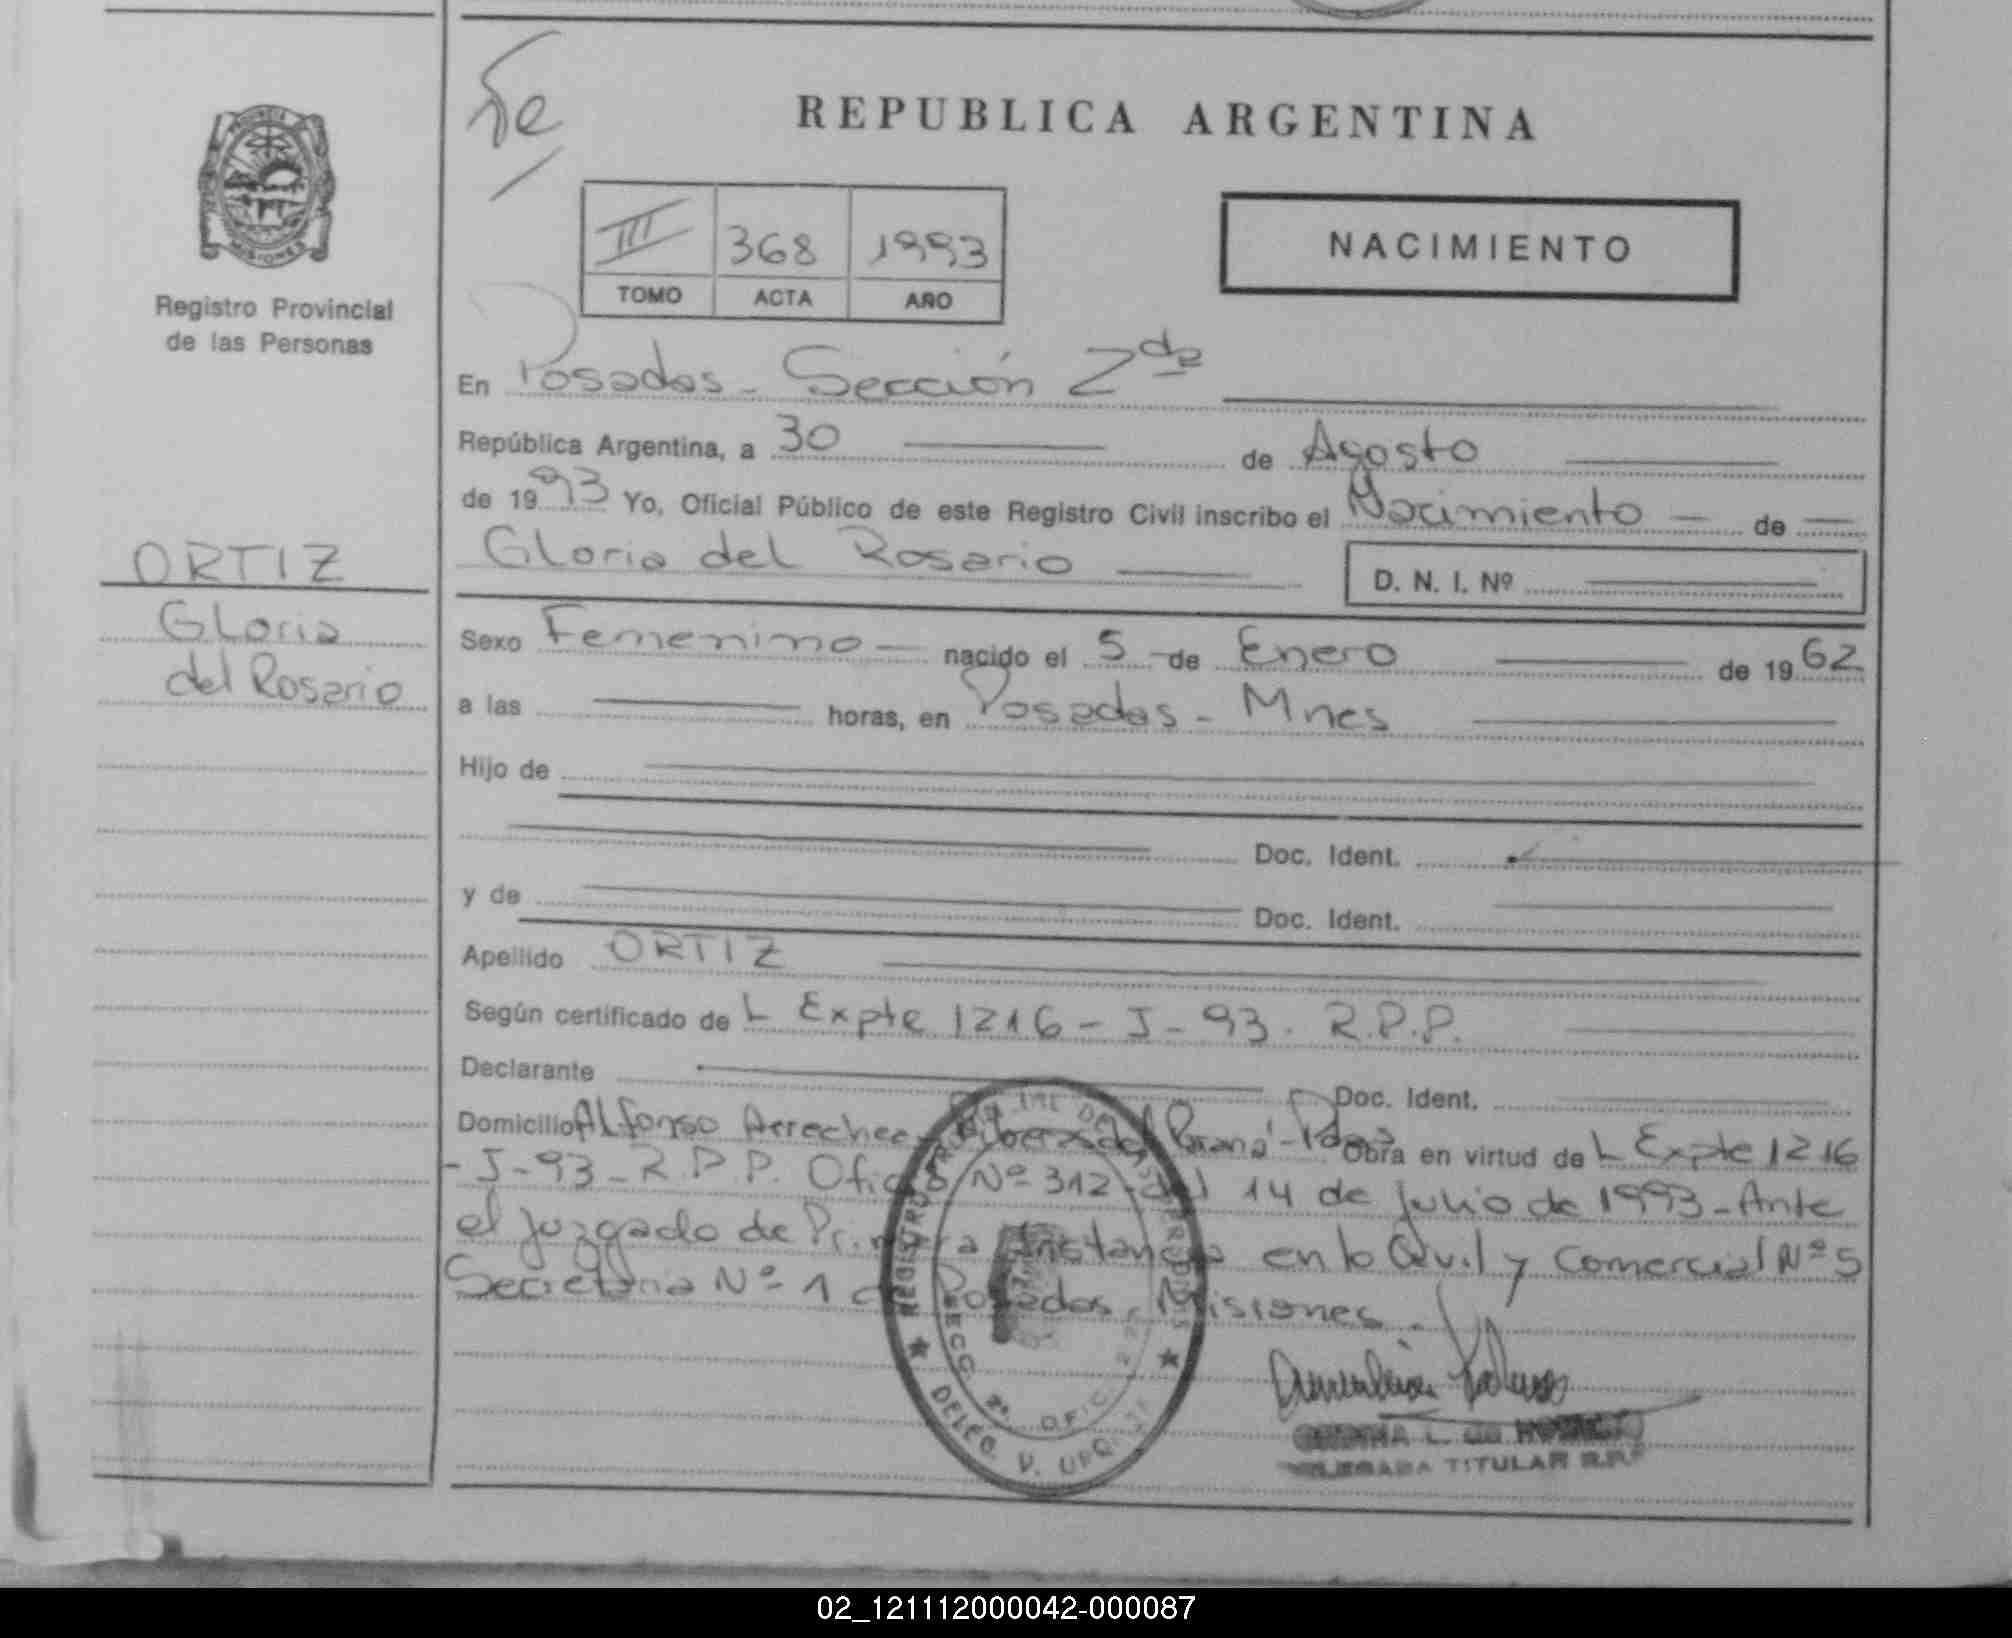 Fe
REPUBLICA ARGENTINA
PROVINCIA
MISIONES
III 368 1993
TOMO ACTA AÑO
NACIMIENTO
Registro Provincial
de las Personas
En Posadas - Sección 2da
República Argentina, a 30 de Agosto
de 1993 Yo, Oficial Público de este Registro Civil inscribo el Nacimiento - de
Gloria del Rosario D. N. I. Nº
ORTIZ
Gloria
del Rosario
Sexo Femenino - nacido el 5 - de Enero de 1962
a las horas, en Posadas - Mnes
Hijo de
Doc. Ident.
y de Doc. Ident.
Apellido ORTIZ
Según certificado de L Expte 1216 - J - 93. R.P.P.
Declarante Doc. Ident.
Domicilio Alfonso Arrechea - Ribera del Paraná - Pdas Obra en virtud de L Expte 1216
- J - 93 - R.P.P. Oficio Nº 312 - del 14 de Julio de 1993 - Ante
el Juzgado de Primera Instancia en lo Civil y Comercial Nº 5
Secretaria Nº 1 de Posadas, Misiones.
REGISTRO DE LAS PERSONAS
SECC. 2º OFIC.
DELEG. V. URQ
L. de
TITULAR R.P.P
02_121112000042-000087